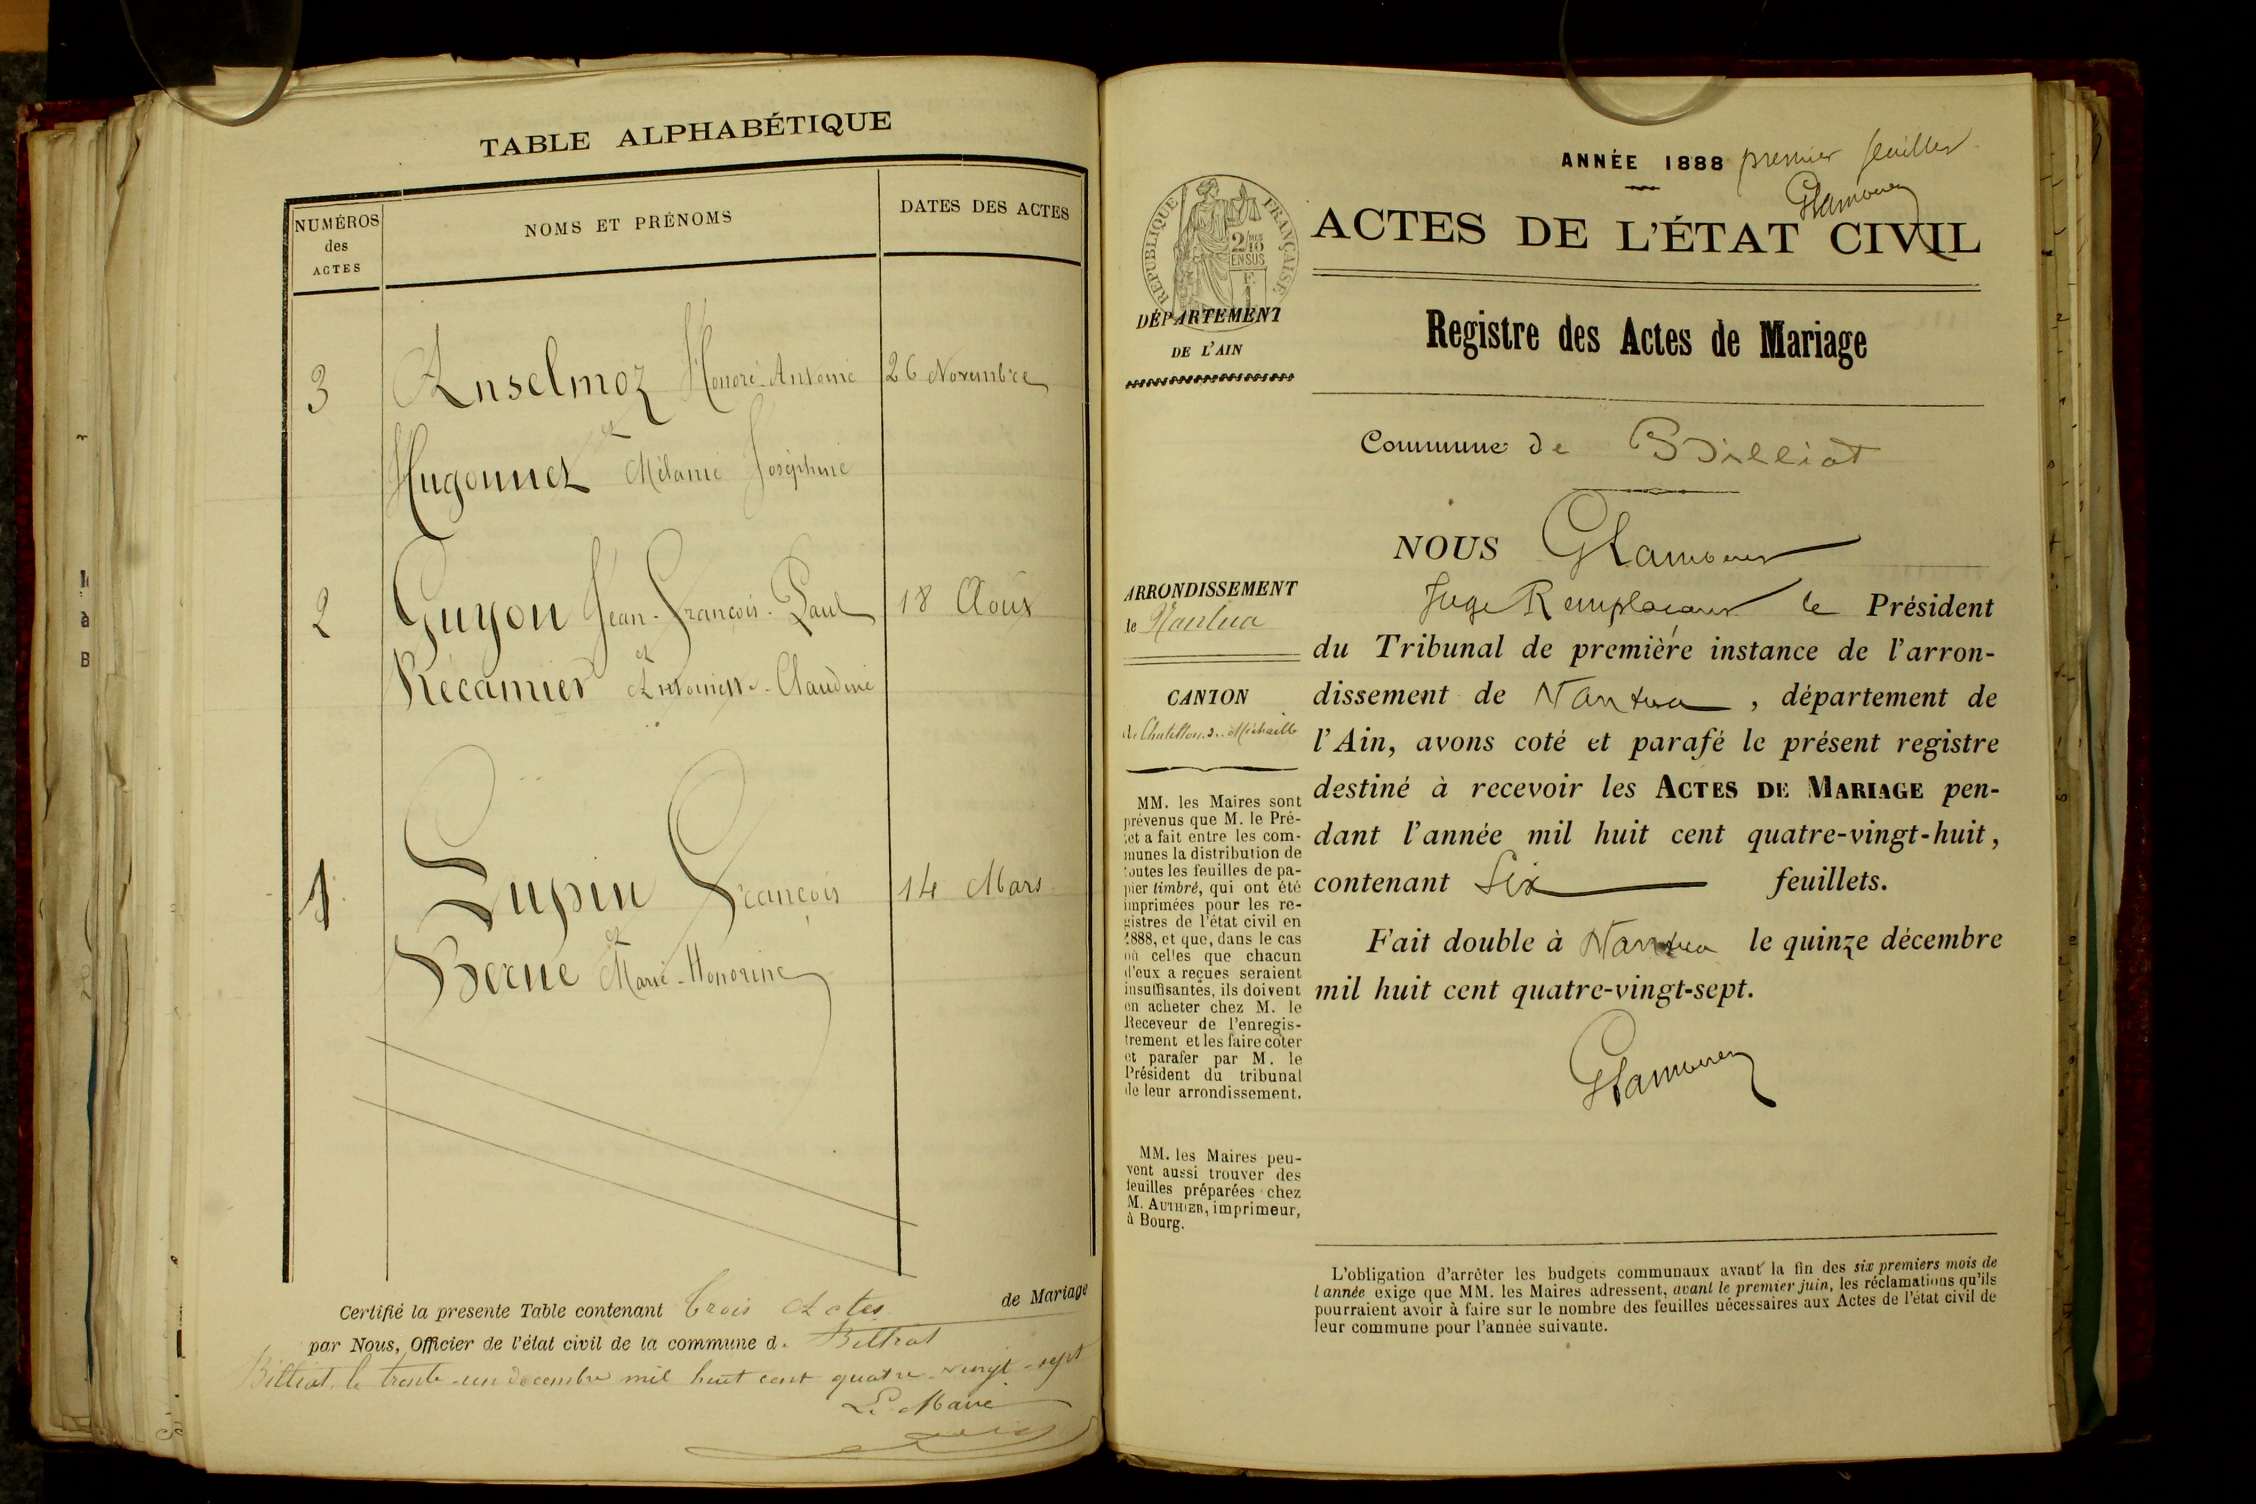 TABLE ALPHABÉTIQUE
NUMÉROS
des
ACTES
NOMS ET PRÉNOMS
DATES DES ACTES
3
Anselmoz Honoré-Antoine
26 Novembre
et
Hugonnet Mélanie Joséphine
2
Guyon Jean-François-Paul
18 Août
et
Récamier Antoinette-Claudine
1
Lupin François
14 Mars
et
Berne Marie-Honorine
Certifié la presente Table contenant Trois Actes de Mariage
par Nous, Officier de l'état civil de la commune d. Billiat
Billiat le trente-un décembre mil huit cent quatre-vingt-sept
Le Maire
ANNÉE 1888 premier feuillet
ACTES DE L'ÉTAT CIVIL
RÉPUBLIQUE FRANÇAISE
2/10
EN SUS
DÉPARTEMENT
DE L'AIN
Registre des Actes de Mariage
Commune de Billiat
NOUS
Juge Remplaçant le Président
du Tribunal de première instance de l'arron-
dissement de Nantua, département de
l'Ain, avons coté et parafé le présent registre
destiné à recevoir les ACTES DE MARIAGE pen-
dant l'année mil huit cent quatre-vingt-huit,
contenant Six feuillets.
Fait double à Nantua le quinze décembre
mil huit cent quatre-vingt-sept.
ARRONDISSEMENT
de Nantua
CANTON
de Chatillon-de-Michaille
MM. les Maires sont
prévenus que M. le Pré-
fet a fait entre les com-
munes la distribution de
toutes les feuilles de pa-
pier timbré, qui ont été
imprimées pour les re-
gistres de l'état civil en
1888, et que, dans le cas
où celles que chacun
d'eux a reçues seraient
insuffisantes, ils doivent
en acheter chez M. le
Receveur de l'enregis-
trement et les faire coter
et parafer par M. le
Président du tribunal
de leur arrondissement.
MM. les Maires peu-
vent aussi trouver des
feuilles préparées chez
M. AUTHIER, imprimeur,
à Bourg.
L'obligation d'arrêter les budgets communaux avant la fin des six premiers mois de
l'année exige que MM. les Maires adressent, avant le premier juin, les réclamations qu'ils
pourraient avoir à faire sur le nombre des feuilles nécessaires aux Actes de l'état civil de
leur commune pour l'année suivante.